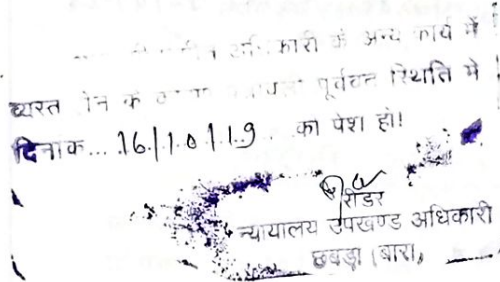 अधिकारी के अन्य कार्य में
व्यस्त होने के पूर्ववत स्थिति में
दिनांक... 16/10/19 .. को पेश हो!
रीडर
न्यायालय उपखण्ड अधिकारी
छबड़ा (बारा)